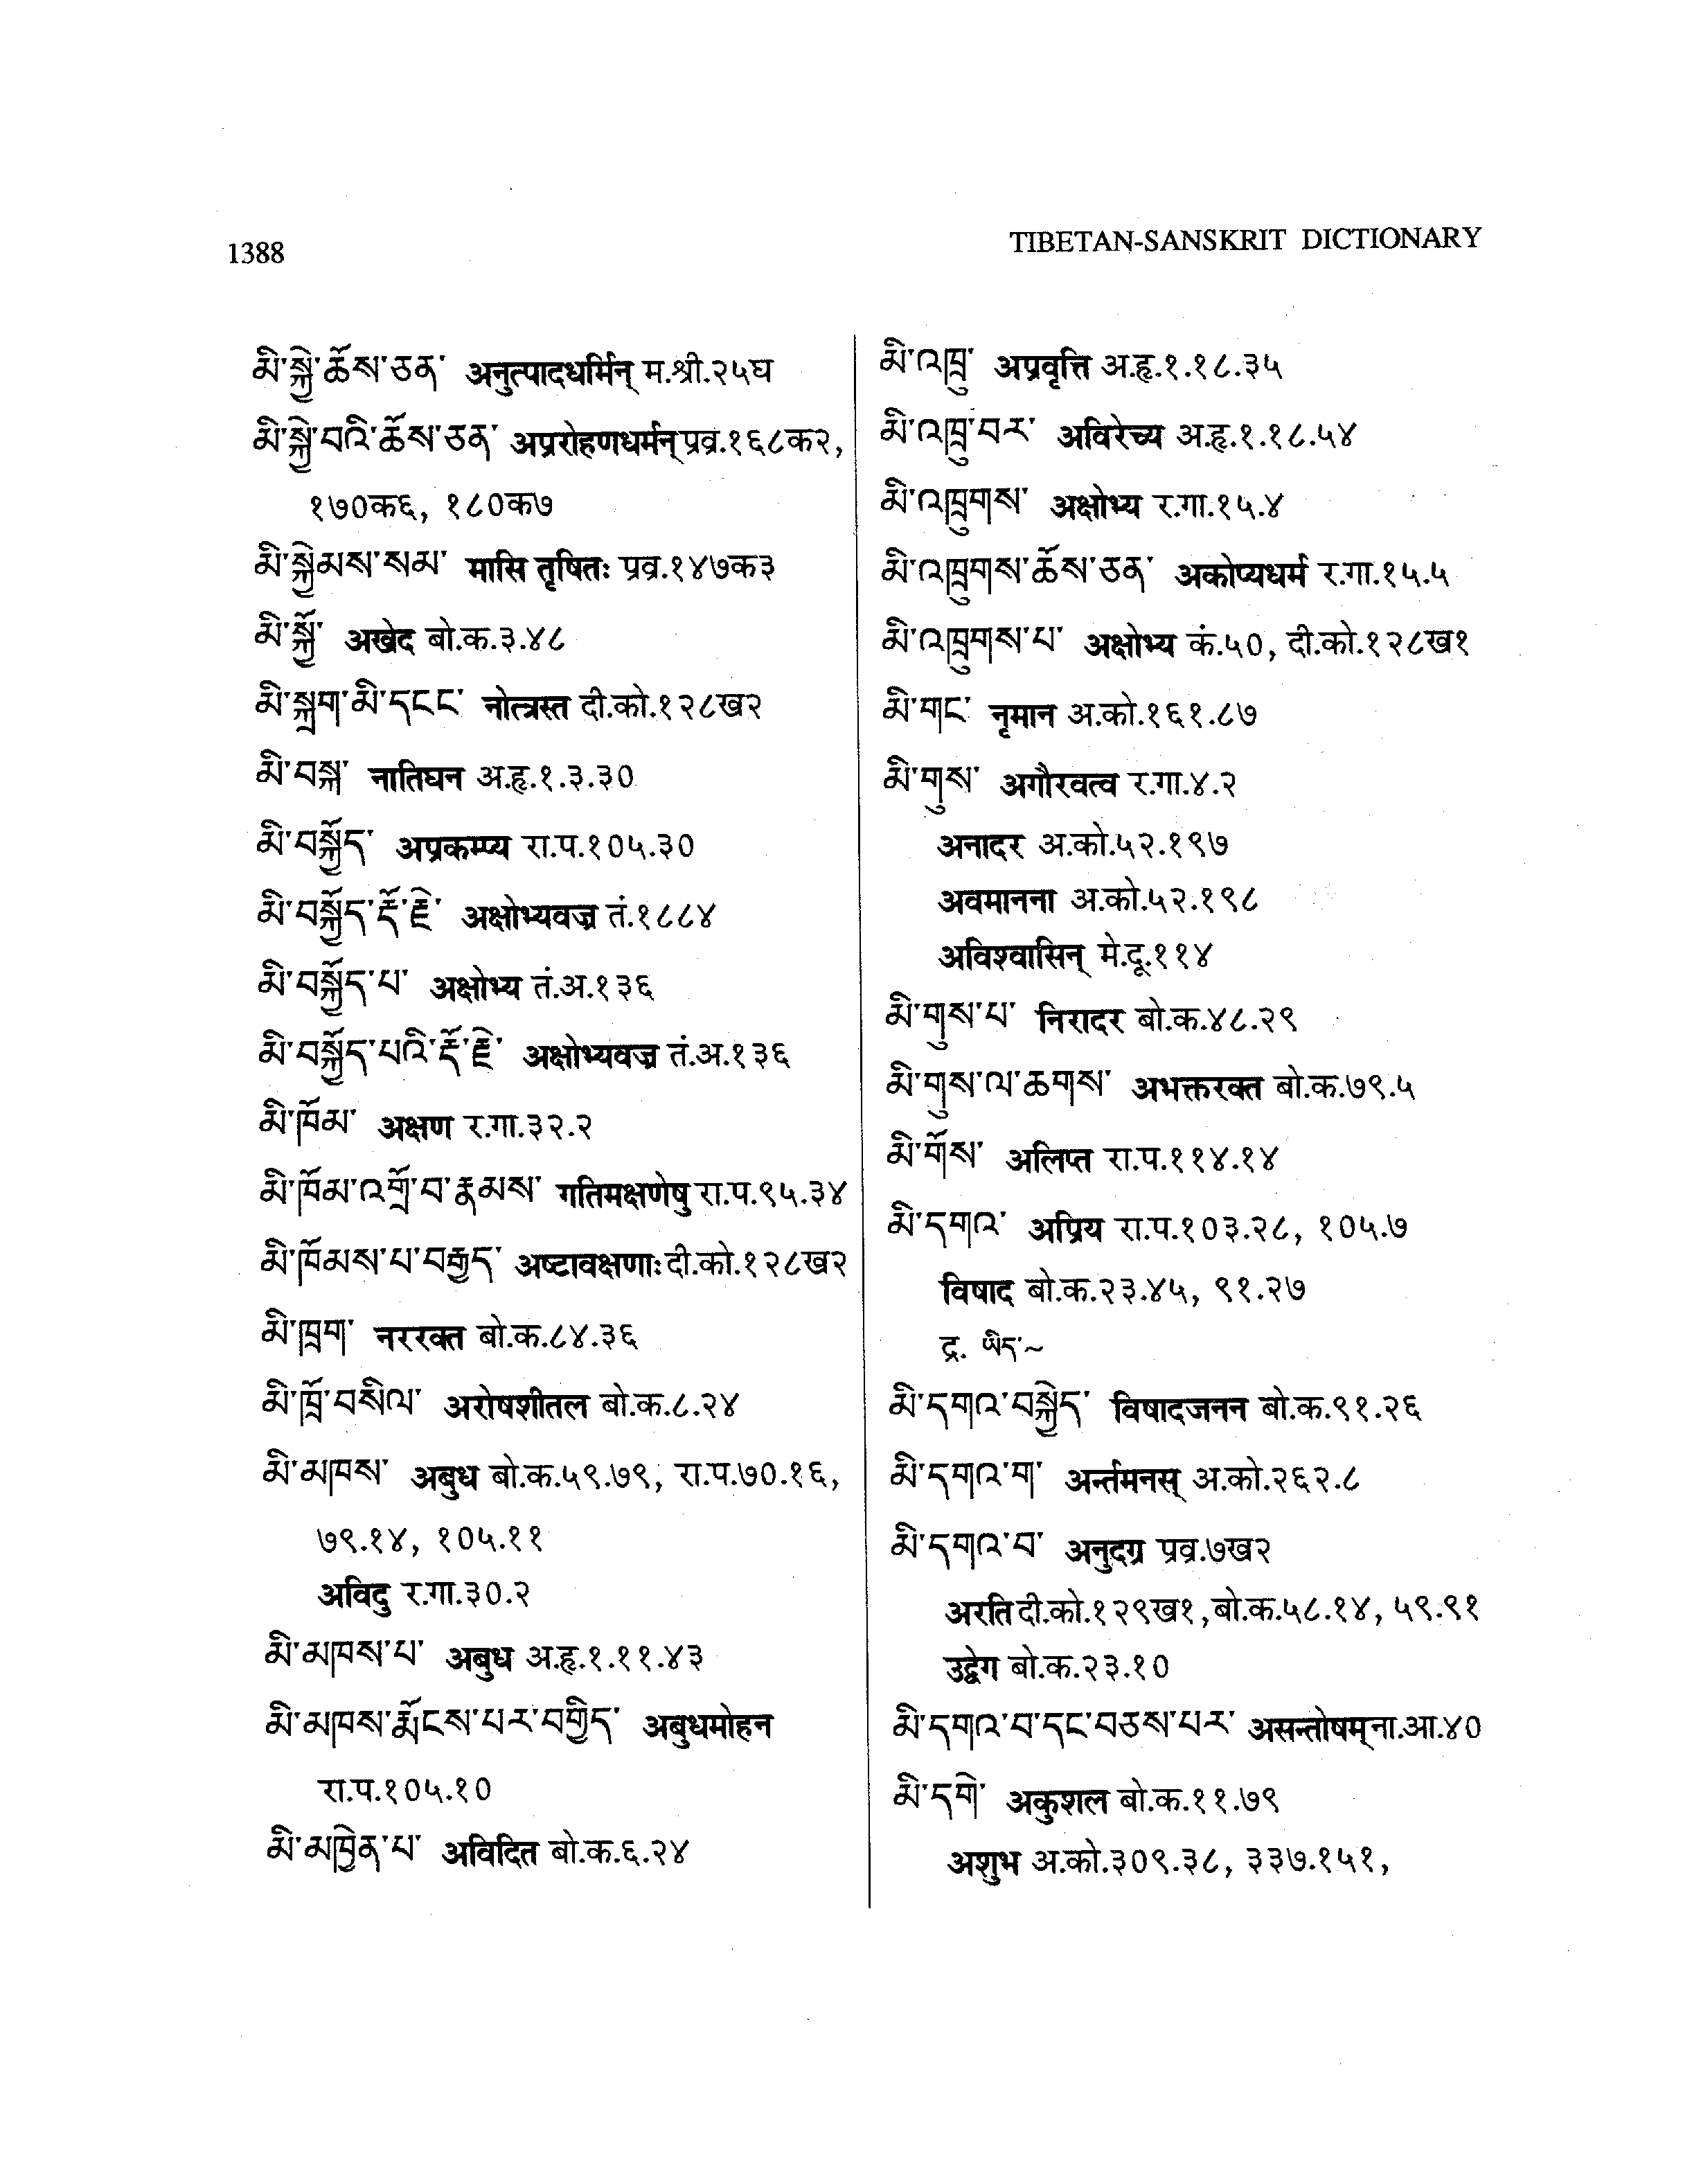 1388
TIBETAN-SANSKRIT DICTIONARY
མི་སྐྱེ་ཆོས་ཅན་ अनुत्पादधर्मिन् म.श्री.२५घ
མི་སྐྱེ་བའི་ཆོས་ཅན་ अप्ररोहणधर्मन् प्रव्र.१६८क२,
१७०क६, १८०क७
མི་སྐྱེམས་སམ་ मासि तृषितः प्रव्र.१४७क३
མི་སྐྱོ་ अखेद बो.क.३.४८
མི་སྐྲག་མི་དངང་ नोत्त्रस्त दी.को.१२८ख२
མི་བསྐ་ नातिघन अ.हृ.१.३.३०
མི་བསྐྱོད་ अप्रकम्प्य रा.प.१०५.३०
མི་བསྐྱོད་རྡོ་རྗེ་ अक्षोभ्यवज्र तं.१८८४
མི་བསྐྱོད་པ་ अक्षोभ्य तं.अ.१३६
མི་བསྐྱོད་པའི་རྡོ་རྗེ་ अक्षोभ्यवज्र तं.अ.१३६
མི་ཁོམ་ अक्षण र.गा.३२.२
མི་ཁོམ་འགྲོ་བ་རྣམས་ गतिमक्षणेषु रा.प.९५.३४
མི་ཁོམས་པ་བརྒྱད་ अष्टावक्षणाः दी.को.१२८ख२
མི་ཁྲག་ नररक्त बो.क.८४.३६
མི་ཁྲོ་བསིལ་ अरोषशीतल बो.क.८.२४
མི་མཁས་ अबुध बो.क.५९.७९, रा.प.७०.१६,
७९.१४, १०५.११
अविदु र.गा.३०.२
མི་མཁས་པ་ अबुध अ.हृ.१.११.४३
མི་མཁས་རྨོངས་པར་བགྱིད་ अबुधमोहन
रा.प.१०५.१०
མི་མཁྱེན་པ་ अविदित बो.क.६.२४
མི་འཁྲུ་ अप्रवृत्ति अ.हृ.१.१८.३५
མི་འཁྲུ་བར་ अविरेच्य अ.हृ.१.१८.५४
མི་འཁྲུགས་ अक्षोभ्य र.गा.१५.४
མི་འཁྲུགས་ཆོས་ཅན་ अकोप्यधर्म र.गा.१५.५
མི་འཁྲུགས་པ་ अक्षोभ्य कं.५०, दी.को.१२८ख१
མི་གང་ नृमान अ.को.१६१.८७
མི་གུས་ अगौरवत्व र.गा.४.२
अनादर अ.को.५२.१९७
अवमानना अ.को.५२.१९८
अविश्वासिन् मे.दू.११४
མི་གུས་པ་ निरादर बो.क.४८.२९
མི་གུས་ལ་ཆགས་ अभक्तरक्त बो.क.७९.५
མི་གོས་ अलिप्त रा.प.११४.१४
མི་དགའ་ अप्रिय रा.प.१०३.२८, १०५.७
विषाद बो.क.२३.४५, ९१.२७
द्र. ཡིད་~
མི་དགའ་བསྐྱེད་ विषादजनन बो.क.९१.२६
མི་དགའ་ག་ अर्न्तमनस् अ.को.२६२.८
མི་དགའ་བ་ अनुदग्र प्रव्र.७ख२
अरति दी.को.१२९ख१, बो.क.५८.१४, ५९.९१
उद्वेग बो.क.२३.१०
མི་དགའ་བ་དང་བཅས་པར་ असन्तोषम् ना.आ.४०
མི་དགེ་ अकुशल बो.क.११.७९
अशुभ अ.को.३०९.३८, ३३७.१५१,